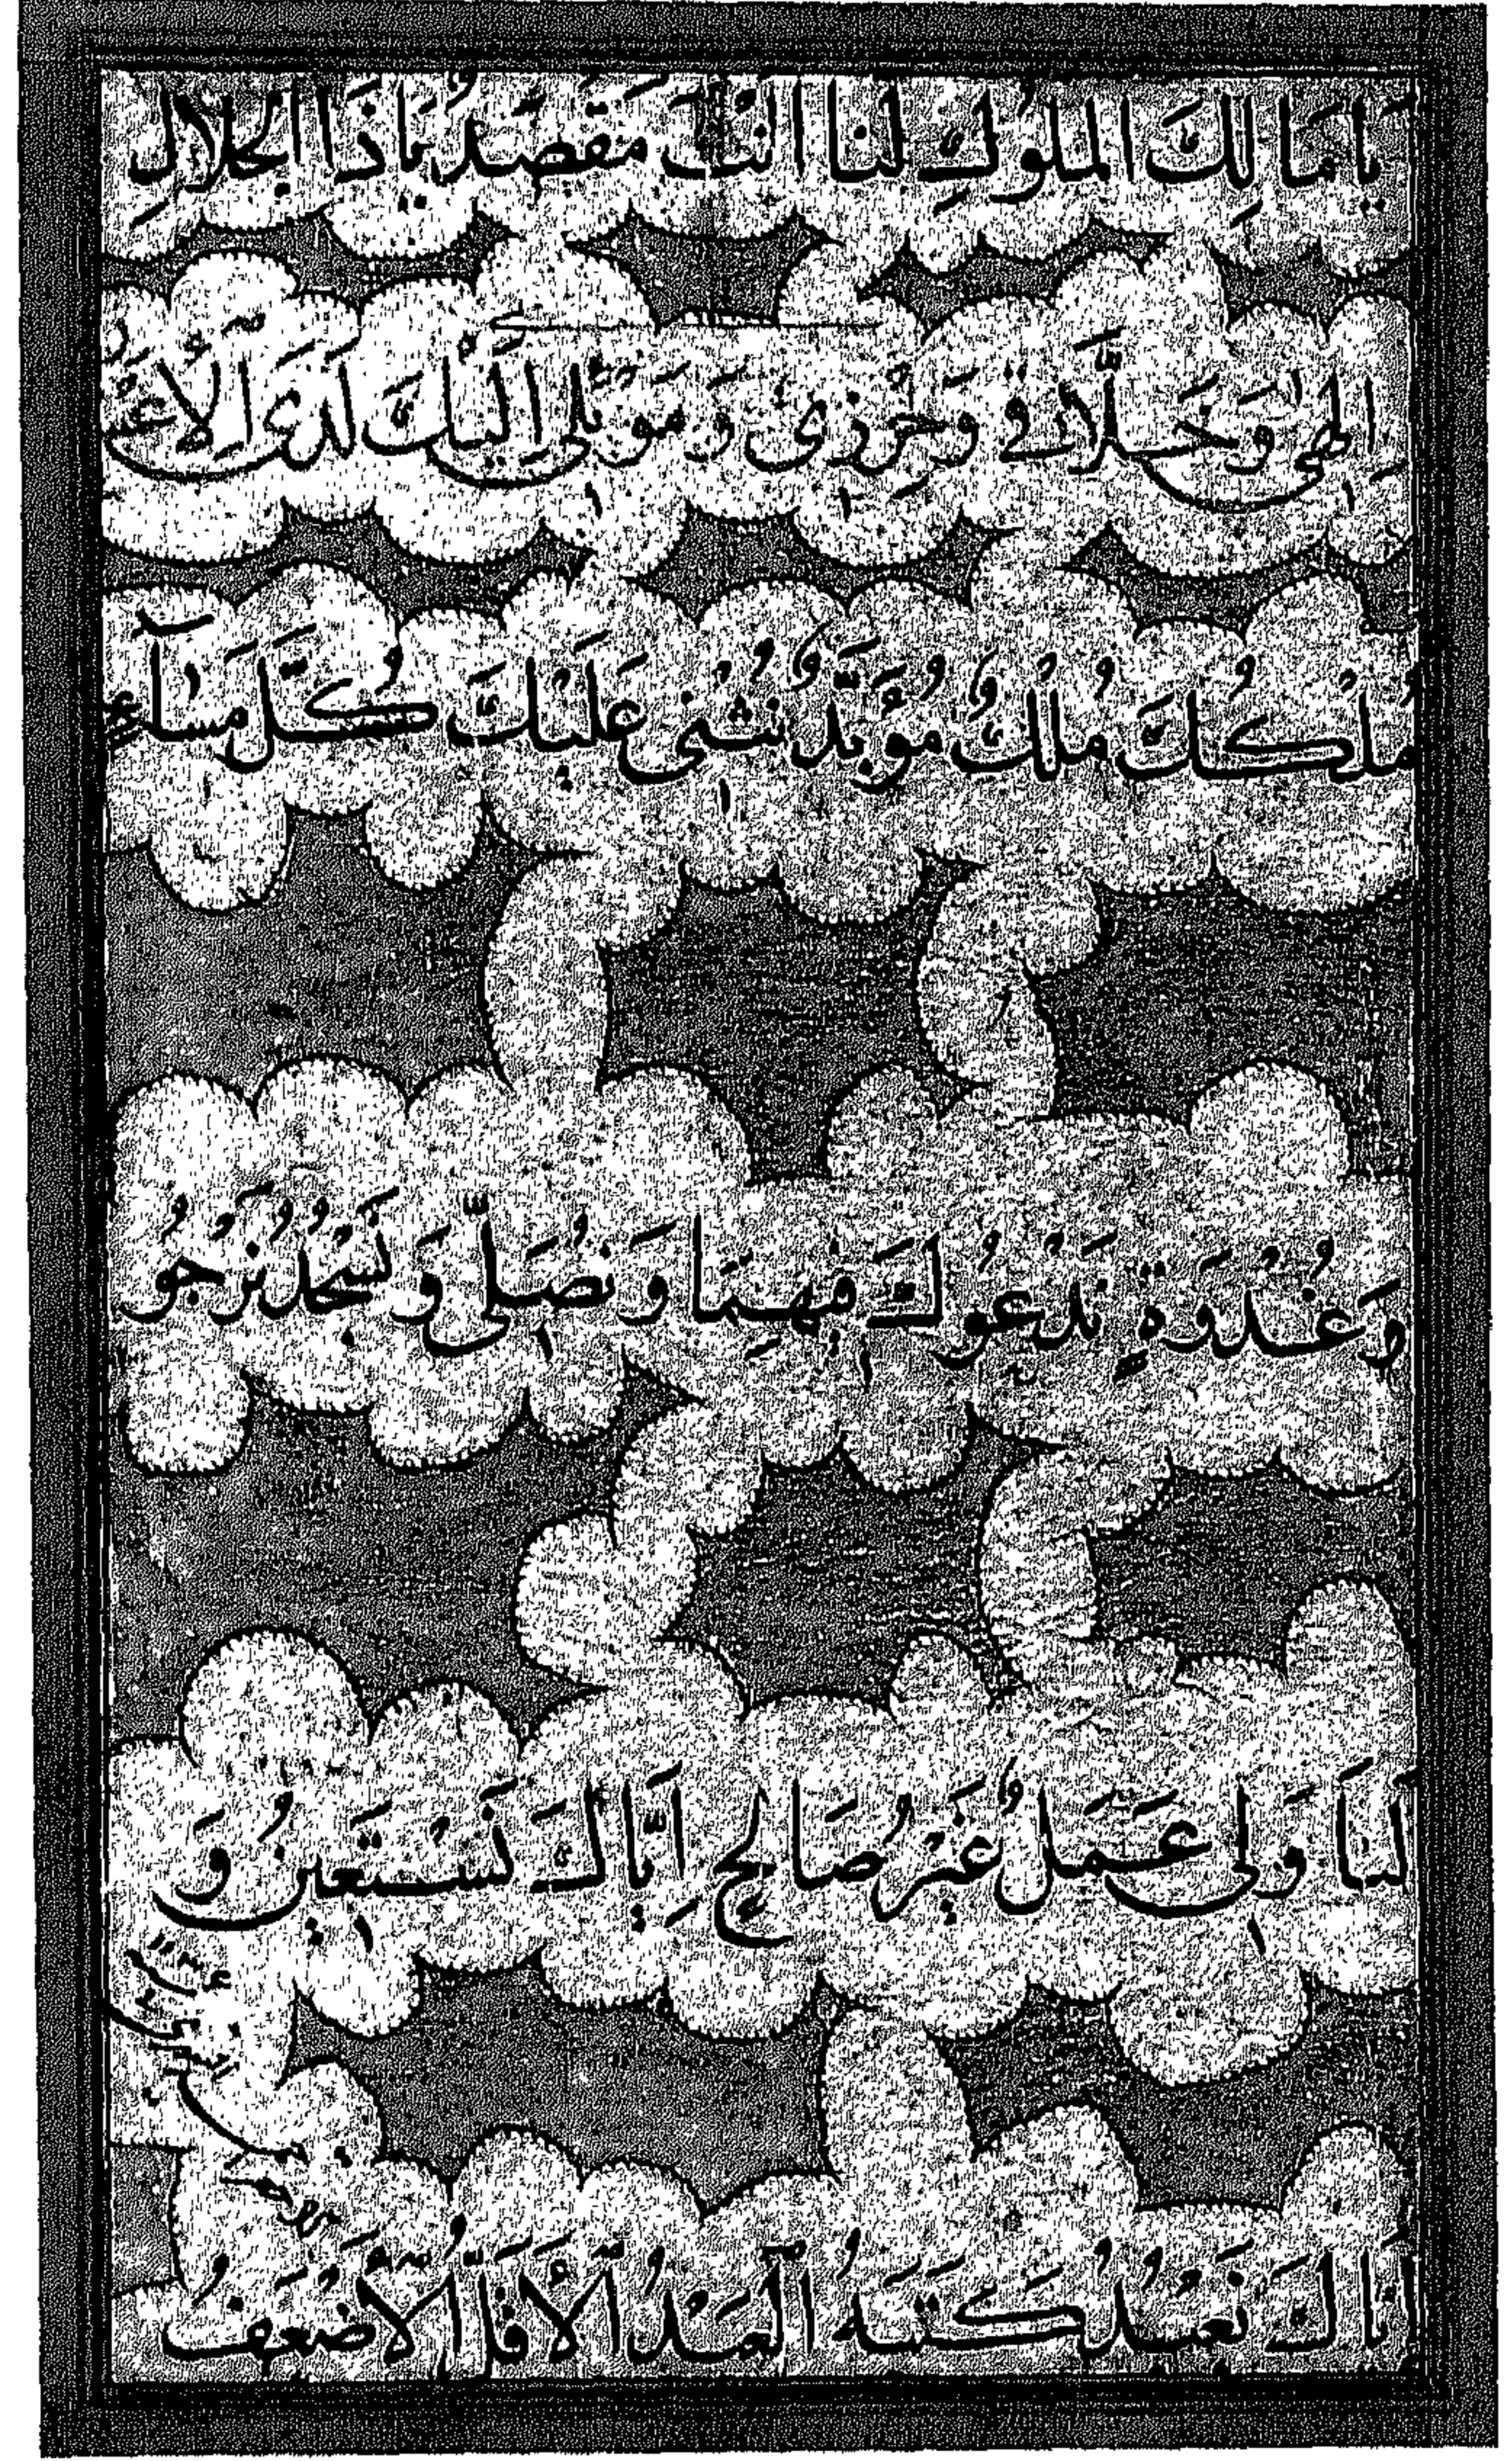 يَا مَالِكَ الملُوكِ لنا انْتَ مَقصَدُ يَاذَا الجلالِ
اِلٰهى وَخَلَّاقى وَحِرْزى وَمَوْئلى اِلَيْكَ لَدَى الاِعْسَارِ
مُلْكُكَ مُلْكٌ مُؤَبَّدٌ نُثْنى عَلَيْكَ كُلَّ مَسَآءٍ
وَغُدْوَةٍ نَدْعُوكَ فيهِمَا وَنُصَلّى وَنَسْجُدُ نَرْجُو
لنَا وَلى عَمَلٌ غَيْرُ صَالحٍ اِيَّاكَ نَسْتَعينُ وَ
اِيَّاكَ نَعْبُدُ كَتَبَهُ العَبْدُ الأَقَلُّ الأَضْعَفُ